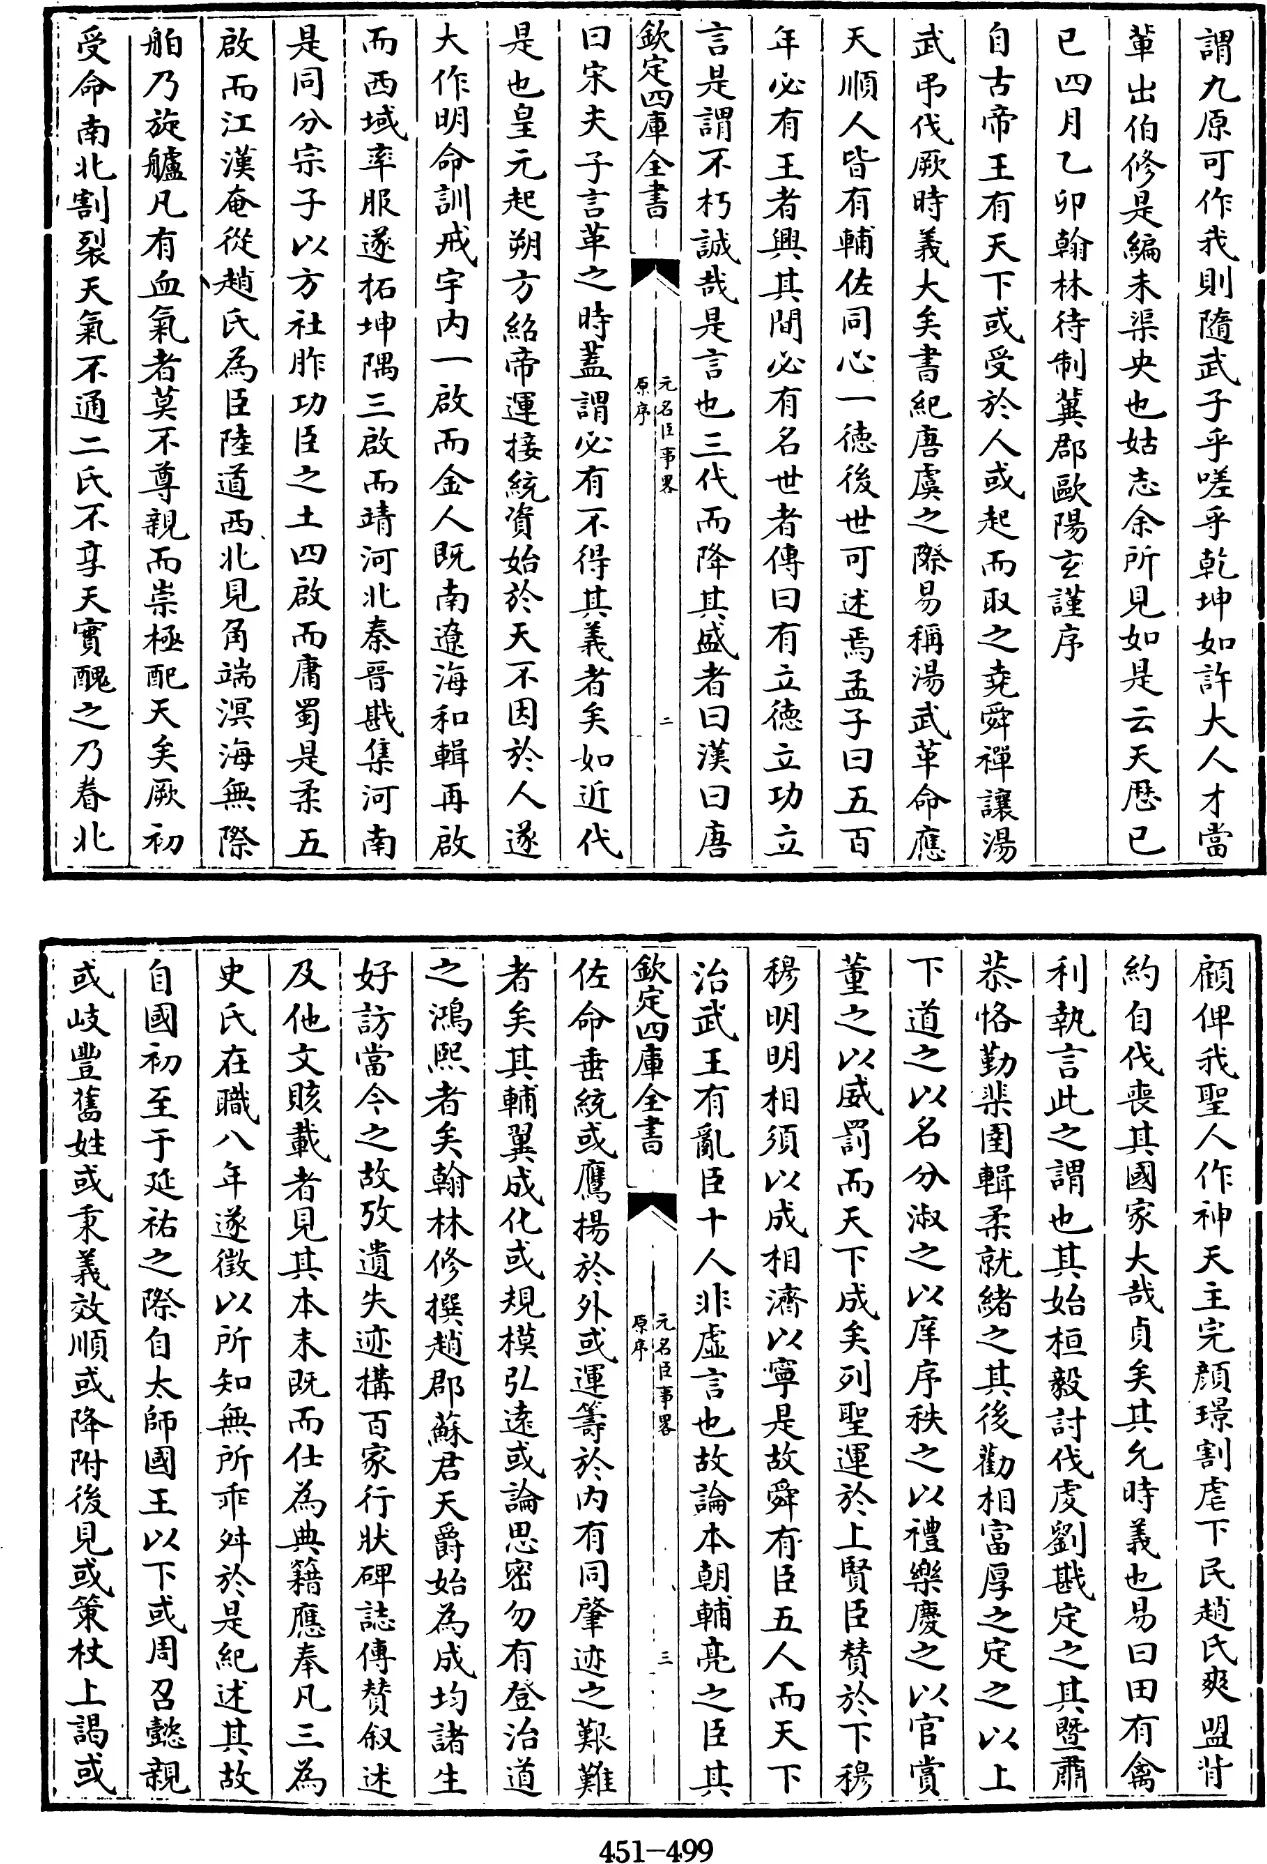 謂九原可作我則隨武子乎嗟乎乾坤如許大人才當
輩出伯修是編未渠央也姑志余所見如是云天歷已
已四月乙卯翰林待制冀郡歐陽玄謹序
自古帝王有天下或受於人或起而取之堯舜禪讓湯
武弔伐厥時義大矣書紀唐虞之際易稱湯武革命應
天順人皆有輔佐同心一德後世可述焉孟子曰五百
年必有王者興其間必有名世者傳曰有立德立功立
言是謂不朽誠哉是言也三代而降其盛者曰漢曰唐
欽定四庫全書
元名臣事畧
原序
二
曰宋夫子言革之時蓋謂必有不得其義者矣如近代
是也皇元起朔方紹帝運接統資始於天不因於人遂
大作明命訓戒宇內一啟而金人既南遼海和輯再啟
而西域率服遂拓坤隅三啟而靖河北秦晉戡集河南
是同分宗子以方社胙功臣之土四啟而庸蜀是柔五
啟而江漢奄從趙氏為臣陸道西北見角端溟海無際
舶乃旋艫凡有血氣者莫不尊親而崇極配天矣厥初
受命南北割裂天氣不通二氏不享天實醜之乃眷北
顧俾我聖人作神天主完顏璟割虐下民趙氏爽盟背
約自伐喪其國家大哉貞矣其允時義也易曰田有禽
利執言此之謂也其始桓毅討伐虔劉戡定之其暨肅
恭恪勤棐圉輯柔就緒之其後勸相富厚之定之以上
下道之以名分淑之以庠序秩之以禮樂慶之以官賞
董之以威罰而天下成矣列聖運於上賢臣贊於下穆
穆明明相須以成相濟以寧是故舜有臣五人而天下
治武王有亂臣十人非虛言也故論本朝輔亮之臣其
欽定四庫全書
元名臣事畧
原序
三
佐命垂統或鷹揚於外或運籌於內有同肇迹之艱難
者矣其輔翼成化或規模弘遠或論思密勿有登治道
之鴻熙者矣翰林修撰趙郡蘇君天爵始為成均諸生
好訪當今之故攷遺失迹構百家行狀碑誌傳贊叙述
及他文賅載者見其本末既而仕為典籍應奉凡三為
史氏在職八年遂徵以所知無所乖舛於是紀述其故
自國初至于延祐之際自太師國王以下或周召懿親
或岐豐舊姓或秉義效順或降附後見或策杖上謁或
451-499